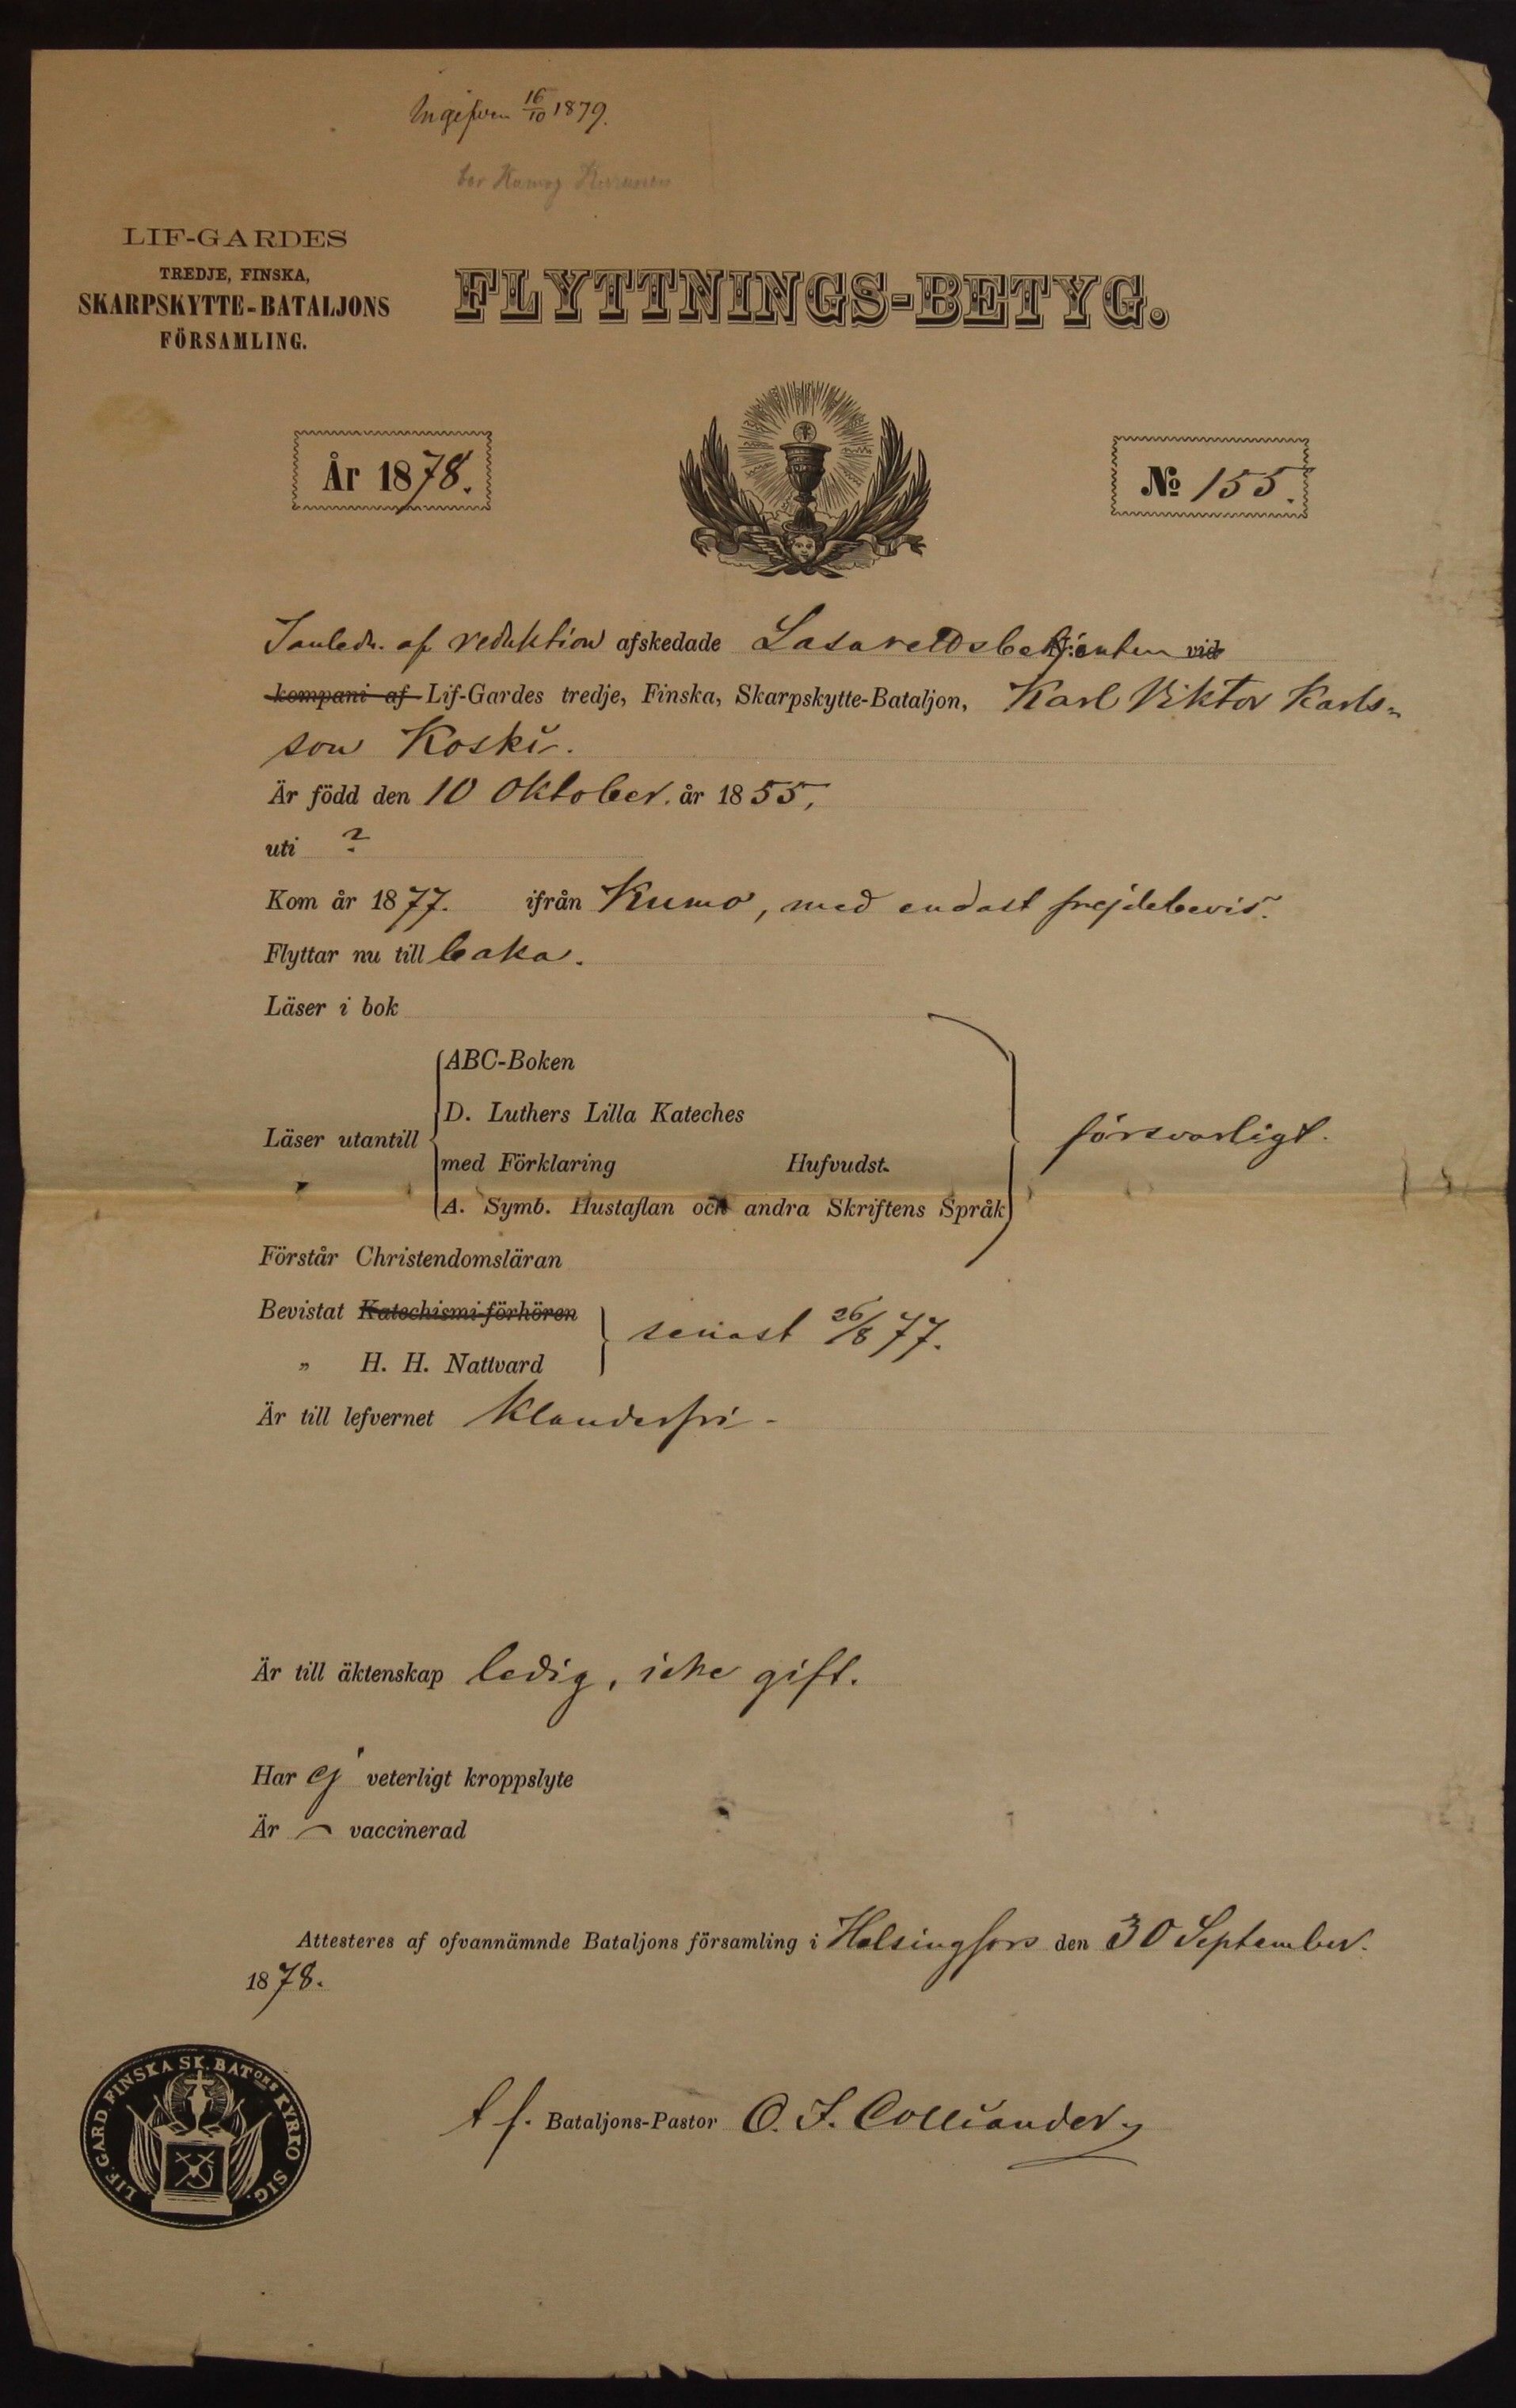 Ingifven 16/10 1879.
bor Kumo
LIF-GARDES
TREDJE, FINSKA,
SKARPSKYTTE-BATALJONS
FÖRSAMLING.
FLYTTNINGS-BETYG.
År 1878.
№ 155.
af reduktion afskedade Lasarettsbetjenten vid
kompani af Lif-Gardes tredje, Finska, Skarpskytte-Bataljon, Karl Viktor Karls=
son Koski.
Är född den 10 Oktober. år 1855,
uti ?
Kom år 1877. ifrån Kumo, med endast frejdebevis.
Flyttar nu till baka.
Läser i bok
ABC-Boken
D. Luthers Lilla Kateches
Läser utantill
försvarligt.
med Förklaring Hufvudst.
A. Symb. Hustaflan och andra Skriftens Språk
Förstår Christendomsläran
Bevistat Katechismi-förhören
senast 26/8 77.
„ H. H. Nattvard
Är till lefvernet klanderfri.
Är till äktenskap ledig, icke gift.
Har ej veterligt kroppslyte
Är vaccinerad
Attesteres af ofvannämnde Bataljons församling i Helsingfors den 30 September.
1878.
LIF. GARD. FINSKA SK. BATONS KYRKO SIG.
t f. Bataljons-Pastor O. I. Colliander